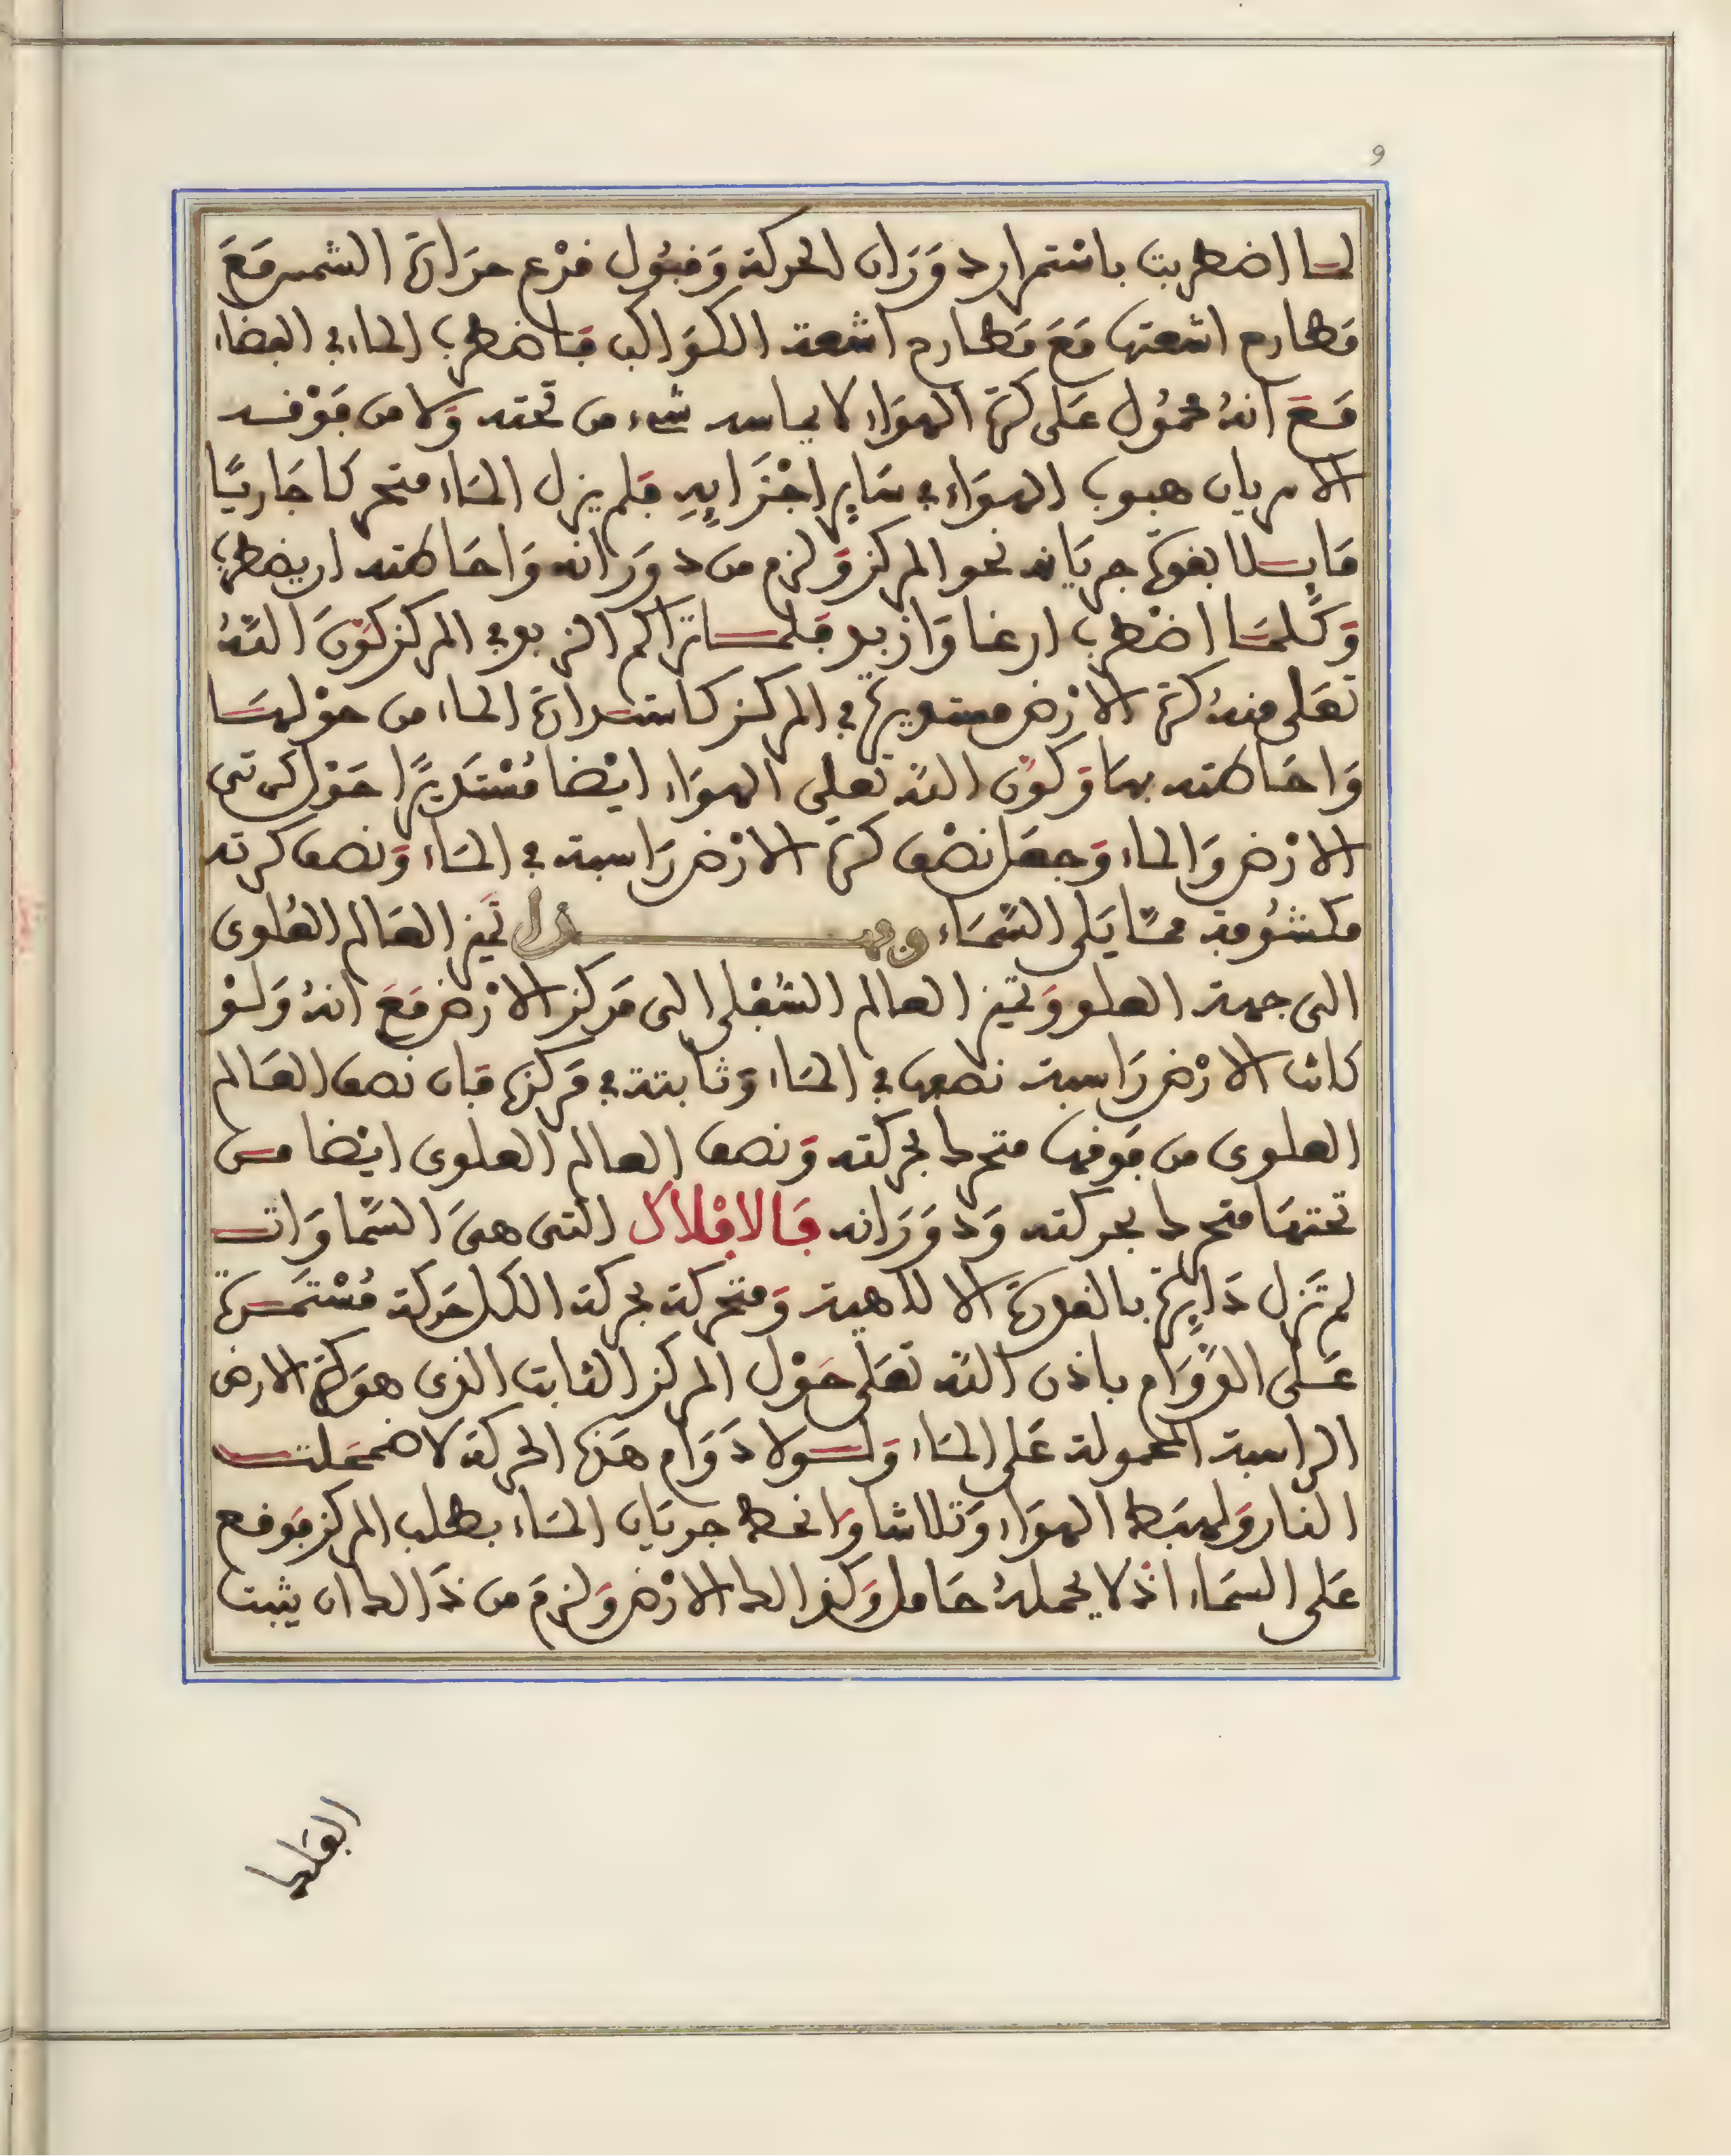 9
لما اضطربت باستمرار دَوَرَان الحركة وَقبُول قرْع حرَارَة الشمس مَعَ
مَطارح اشعتها مَعَ مَطارح اشعة الكوَاكب فَاضطرب الماء في الفضاء
مَعَ انهُ محمُول عَلى كرة الهوَاء لا يماسه شيء من تحته وَلا من فَوْقه
الا سريان هبوب الهوَاء في سَايِر اجْزَايِهِ فَلم يزل المَاء متحركا جَاريًا
مَايِلا بقوة جريَانه نحو المركز وَلزم من دوَرَانه وَاحَاطته ان يضطرب
وَكلمَا اضْطرب ارغا وَازبد فَلما تراكم الزبد في المركز كوّنَ اللّهُ
تعَلى منهُ كرة الارْض مستديرة في المركز كاستدارَة الماء من حوْلهَا
وَاحَاطته بهَا وَكوّن اللّه تعلى الهوَاء ايْضا مُسْتَديرًا حَوْل كرتي
الارْض وَالماء وَجعَل نصْف كرة الارْض رَاسبة في المَاء وَنصف كرته
مكشُوفة ممّا يَلي السّمَاء ومن تميز العَالم العُلوى
الى جهة العلو وَتميز العالم السُفلى الى مَركز الارْض مَعَ انهُ وَلوْ
كانت الارْض رَاسبة نصفها في المَاء وَثابتة في مَركزها فَان نصف العَالم
العلوى من فَوقها متحرك بحركته وَنصف العالم العلوى ايْضا من
تحتهَا متحرك بحركته وَدوَرَانه فَالافْلاك التى هىَ السّماوَات
لم تَزل دَايِرة بالقدرَة الالاهية وَمتحركة بحركة الكل حَركة مُسْتَمرة
عَلَى الدّوَام باذن اللّه تعَلى حَوْل المركز الثابت الذى هوَ كرَة الارض
الراسبة المحمولة عَلى المَاء وَلولا دَوَام هَذه الحركة لاضمحَلت
النار وَلهبَط الهوَاء وَتلاشا وَانحط جريَان المَاء بطلب المركز فَوقع
عَلى السمَاء اذ لا يحملهُ حَامل وَكذالك الارْض وَلزمَ من ذَالك ان يثبت